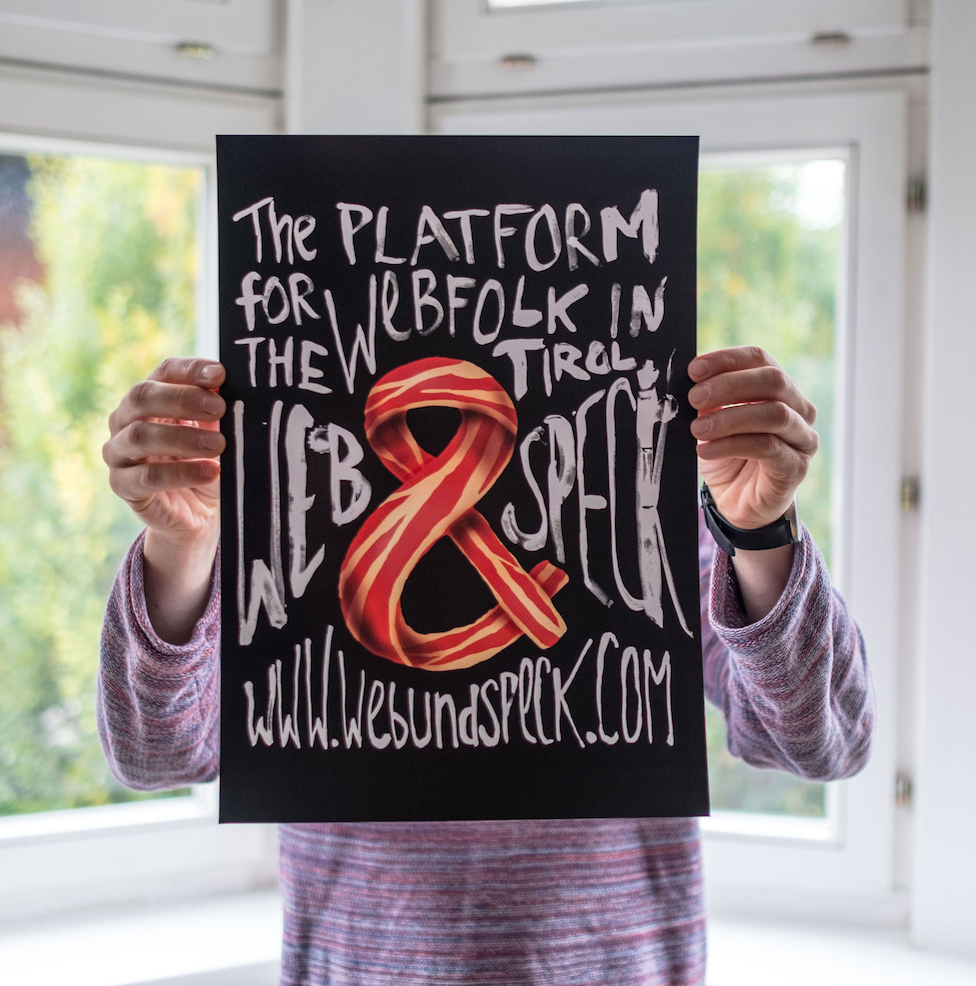 The PLATFORM
FOR WEBFOLK IN
THE TIROL.
WEB & SPECK
www.webundspeck.com